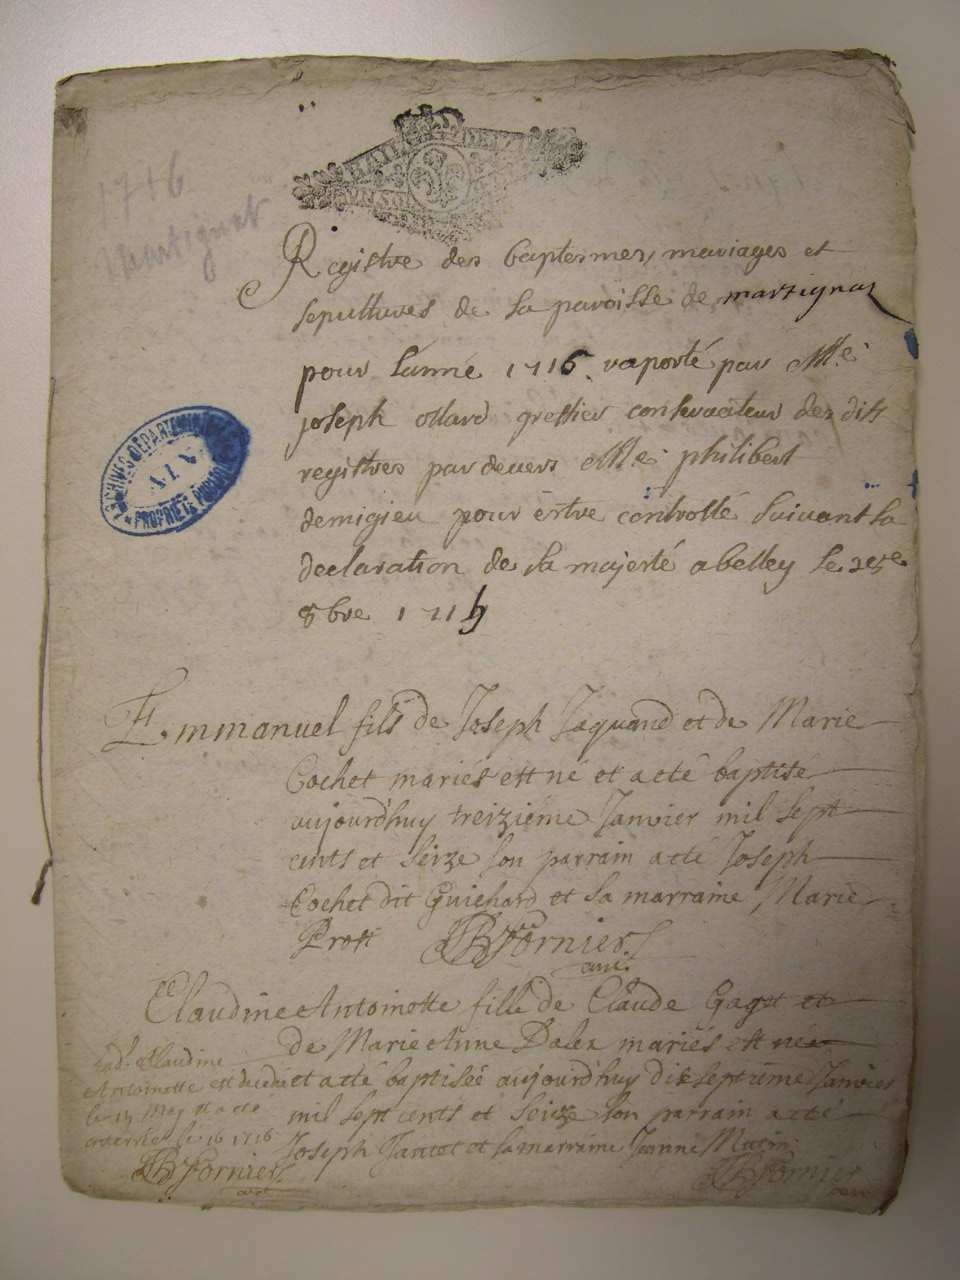 1716
Martignat
Registre des baptesmes, mariages et
sepultures de la paroisse de martignaz
pour lanné 1716. raporté par Me.
joseph ollard greffier conservateur des dits
registres pardevers Me. philibert
demigieu pour estre controllé suivant la
declaration de sa majesté a belley le 25e
8bre 1715
ARCHIVES DÉPARTEMENTALES
AIN
PROPRIÉTÉ PUBLIQUE
Emmanuel fils de Joseph Jaquand et de Marie
Cochet mariés est né et a eté baptisé
aujourd'huy treiziéme Janvier mil sept
cents et seize son parrain a eté Joseph
Cochet dit Guichard et sa marraine Marie
Prost JB Fornier
curé.
Claudine Antoinette fille de Claude Gagst et
de Marie Anne Dalex mariés est née
et a eté baptisée aujourd'huy dix septiéme Janvier
mil sept cents et seize son parrain a eté
Joseph Jantet et sa marraine Janne Mutin
JB Fornier
curé
lad. Claudine
Antoinette est decedée
le 15 May et a eté
enterrée le 16 1716
JB Fornier
curé